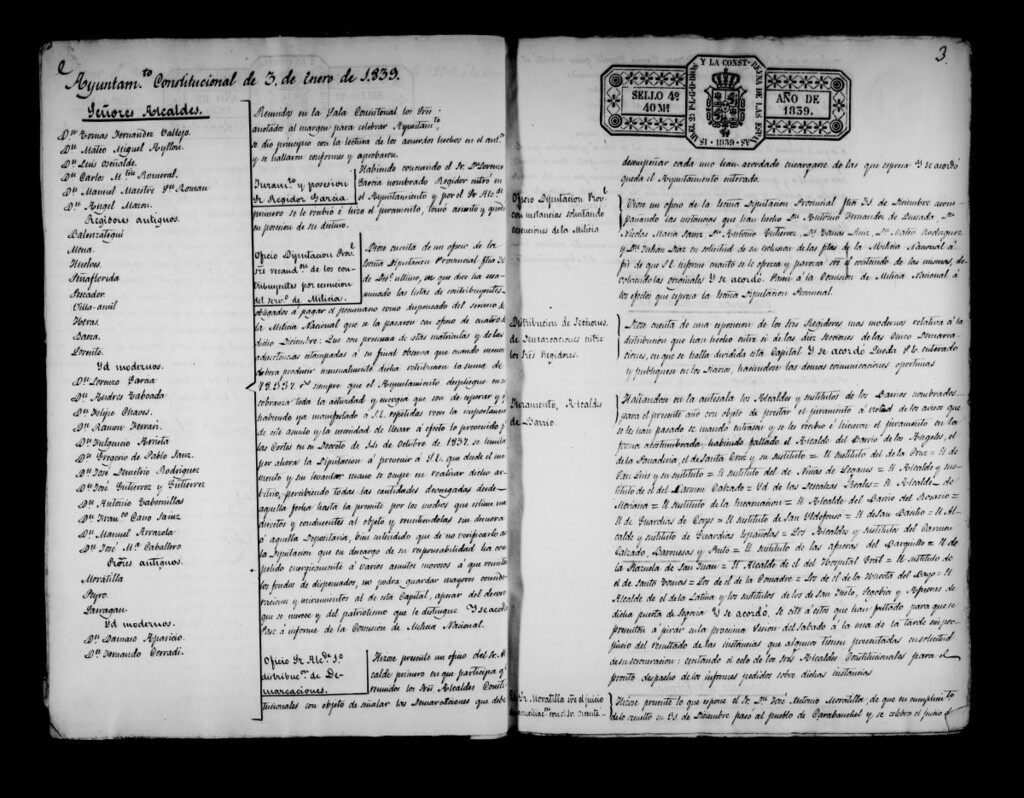 2
Ayuntam.to Constitucional de 3. de Enero de 1.839.
Señores Alcaldes.
Dn Tomas Fernandez Vallejo.
Dn Mateo Miguel Ayllon.
Dn Luis
Dn Carlos M.
Dn Manuel Maestre Sn Roman
Dn Angel Mazon.
Regidores antiguos.
Balenzategui
Mena.
Huelves.
Peñaflorida
Pescador.
Villa-amil
Heras.
Baeza.
Lorente.
Yd modernos.
Dn Lorenzo Garcia
Dn Andres Taboada
Dn Felipe Chaves.
Dn Ramon Ferrari.
Dn Fulgencio Arrieta
Dn Gregorio de Pablo Sanz.
Dn José Demetrio Rodriguez
Dn José Gutierrez y Gutierrez
Dn Antonio Cabernillas
Dn Fran.co Cano Sainz
Dn Manuel Arrazola
Dn José M.a Caballero
antiguos.
Moratilla
Peyro.
Yd modernos.
Dn Damaso Aparicio.
Dn Fernando Corradi.
Reunidos en la Sala Consistorial los Sres
anotados al margen para celebrar Ayuntam.to
se dio principio con la lectura de los acuerdos hechos en el ant.or
y se hallaron conformes y aprobaron.
Juram.to y posesion
Sr Regidor Garcia.
Habiendo concurrido el Sr Dn Lorenzo
Garcia nombrado Regidor entró en
el Ayuntamiento y por el Sr Alc.de
primero se le recibió é hizo el juramento, tomó asiento y quedó
en posesion de su destino.
Oficio Diputacion Prov.l
sre recaud.on de los con-
tribuyentes por esencion
del serv.o de Milicia.
Diose cuenta de un oficio de la
Excma Diputacion Provincial fha
de ultimo, en que dice ha exa-
minado las listas de contribuyentes
obligados á pagar el pecuniario como dispensados del servicio de
la Milicia Nacional que se la pasaron con oficio de cuatro de
dicho Diciembre: Que con presencia de estas matriculas y de las
advertencias estampadas á su final observa que cuando menos
debera producir mensualmente dicha retribucion la suma de
78.557 rs siempre que el Ayuntamiento despliegue en su
cobranza toda la actividad y energia que son de esperar y q.e
habiendo ya manifestado á S.E. repetidas veces la importancia
de este asunto y la necesidad de llevar á efecto lo prevenido p.r
las Cortes en su Decreto de de Octubre de 1837. se limita
por ahora la Diputacion á prevenir á S.E. que desde el mo-
mento y sin levantar mano se ocupe en realizar dicho ar-
bitrio, percibiendo todas las cantidades devengadas desde
aquella fecha hasta la presente por los medios que estime mas
directos y conducentes al objeto y remitiendolas sin demora
á aquella Depositaria, bien entendido que de no verificarlo así
la Diputacion que en descargo de su responsabilidad ha com-
pelido energicamente á varios asuntos morosos á que remitan
los fondos de dispensados, no podra guardar mayores conside-
raciones y miramientos al de esta Capital, apesar del decoro
que se merece y del patriotismo que le distingue Y se acordó
Pase á informe de la Comision de Milicia Nacional.
Oficio Sr Alc.de 1.o
distribuc.on de De-
marcaciones.
Hizose presente un oficio del Sr Al-
calde primero en que participa q.e
reunidos los Sres Alcaldes Consti-
tucionales con objeto de señalar las Demarcaciones que debe
3.
SELLO 4º
40 Ms
AÑO DE
1839.
Y LA CONST.
desempeñar cada uno han acordado encargarse de las que espresa Y se acordó
queda el Ayuntamiento enterado.
Oficio Diputacion Prov.l
con instancias solicitando
esenciones de la Milicia
Viose un oficio de la Excma Diputacion Provincial fha 31 de Diciembre acom-
pañando las instancias que han hecho Dn Antonio Fernandez de Quesada, Dn
Nicolas Maria Saenz Dn Antonio Gutierrez, Dn Mateo Rodriguez
y Dn Julian Diaz en solicitud de su esclusion de las filas de la Milicia Nacional á
fin de que S.E. informe cuanto se le ofrezca y parezca sre el contenido de las mismas, de-
volviendolas originales Y se acordó. Pasen á la Comision de Milicia Nacional á
los efectos que espresa la Excma Diputacion Provincial.
Distribucion de Secciones
de Demarcaciones entre
los Sres Regidores.
Diose cuenta de una esposicion de los Sres Regidores mas modernos relativa á la
distribucion que han hecho entre sí de las diez secciones de las Cinco Demarca-
ciones, en que se halla dividida esta Capital Y se acordó Queda S.E. enterado
y publiquese en los Diarios, haciendose las demas comunicaciones oportunas
Juramento, Alcaldes
de Barrio.
Hallandose en la antesala los Alcaldes y sustitutos de los Barrios nombrados
para el presente año con objeto de prestar el juramento á virtud de los avisos que
se les han pasado se mandó entrasen y se les recibió é hicieron el juramento en la
forma acostumbrada, habiendo faltado el Alcalde del Barrio de los Angeles, el
de la Panaderia, el de Santa Cruz y su sustituto = El sustituto del de la Cruz = El de
San Luis y su sustituto = El sustituto del de Niñas de Leganes = El Alcalde y sus-
tituto de el del Carmen Calzado = Yd de las Descalzas Reales = El Alcalde de
Moriana = El sustituto de la Encarnacion = El Alcalde del Barrio del Rosario =
El de Guardias de Corps = El sustituto de San Yldefonso = El de San Basilio = El Al-
calde y sustituto de Guardias Españolas = Los Alcaldes y sustitutos del Carmen
Calzado, y Pinto = El sustituto de las afueras del Barquillo = El sustituto de
la Plazuela de San Juan = El Alcalde de el del Hospital Gral = El sustituto de
el de Santo Tomas = Los de el de la Comadre = Los de el de la Huerta del Bayo = El
Alcalde de el de la Latina y los sustitutos de los de San Justo, Segovia y Afueras de
dicha puerta de Segovia Y se acordó. Se cite á estos que han faltado para que se
presenten á jurar en la procsima Sesion del Sabado á la una de la tarde sin per-
juicio del resultado de las instancias que algunos tienen presentadas en solicitud
de su esoneracion: escitando el celo de los Sres Alcaldes Constitucionales para el
pronto despacho de los informes pedidos sobre dichas instancias
Sr Moratilla sre el juicio
Hizose presente lo que espone el Sr Dn José Antonio Moratilla, de que en cumplim.to
de lo resuelto en 31. de Diciembre pasó al pueblo de Carabanchel y se celebró el juicio de